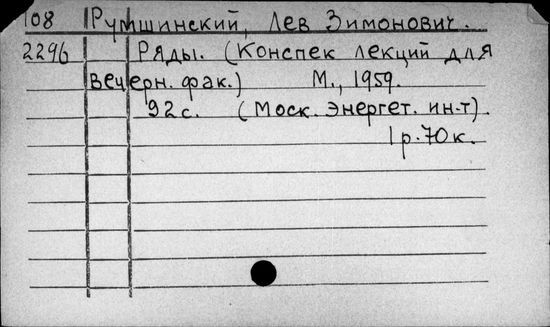 108 Румшинский, Лев Зимонович.
2296 Ряды. (Конспек лекций для
вечерн. фак.) М., 1959.
92 с. (Моск. энергет. ин-т).
1 р. 70 к.